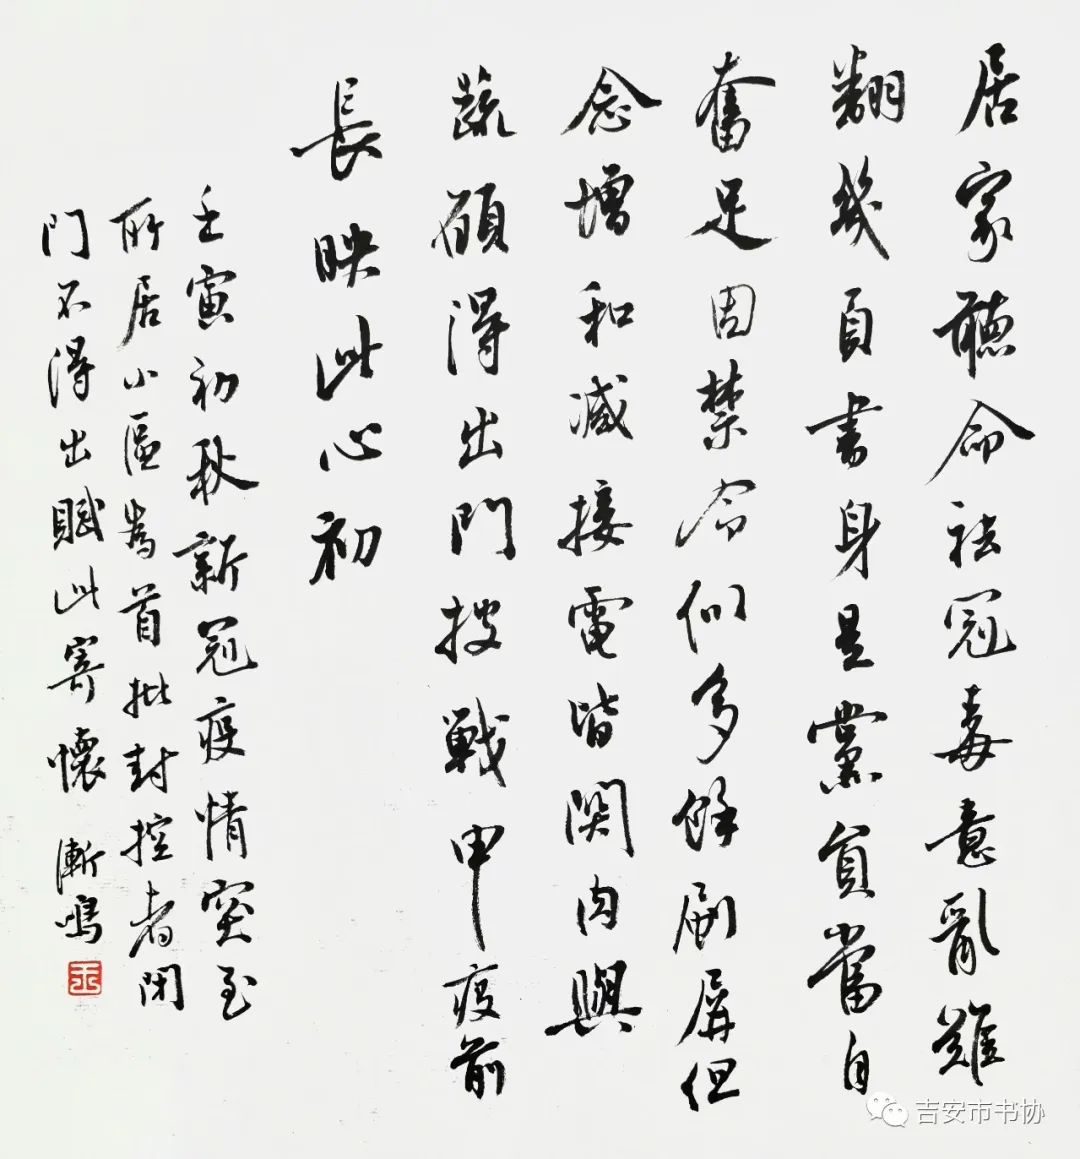 居家聽命祛冠毒意亂難
翻幾頁書身是黨員當自
奮足因禁令似多餘刷屏但
念增和減接電皆関肉與
蔬願得出門披戰甲疫前
長映此心初
壬寅初秋新冠疫情突至
所居小區為首批封控者閉
門不得出賦此寄懷 漸鳴
吉安市书协